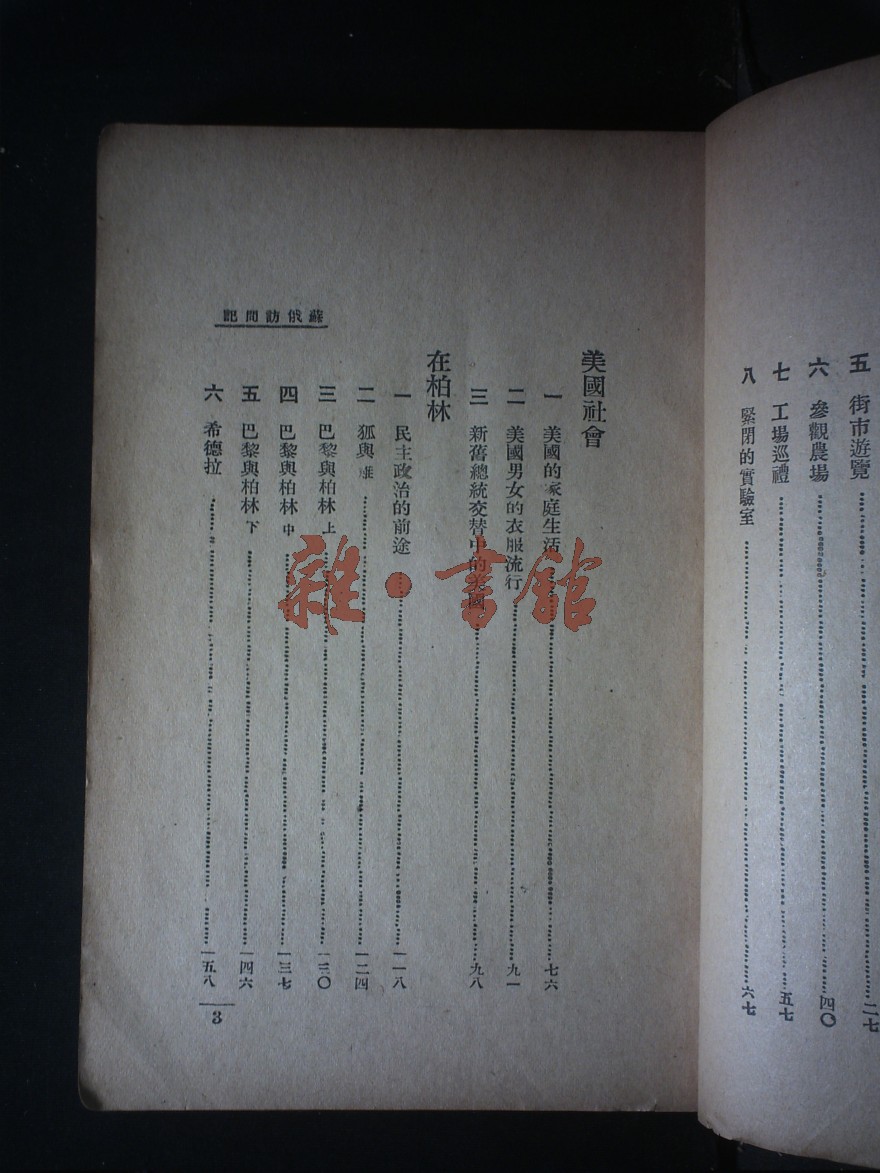 五 街市遊覽 二七
六 參觀農場 四〇
七 工場巡禮 五七
八 緊閉的實驗室 六七
美國社會
一 美國的家庭生活 七六
二 美國男女的衣服流行 九一
三 新舊總統交替中的美國 九八
在柏林
一 民主政治的前途 一一八
二 狐與 一二四
三 巴黎與柏林 上 一三〇
四 巴黎與柏林 中 一三七
五 巴黎與柏林 下 一四六
六 希德拉 一五八
蘇俄訪問記
3
雜·書館